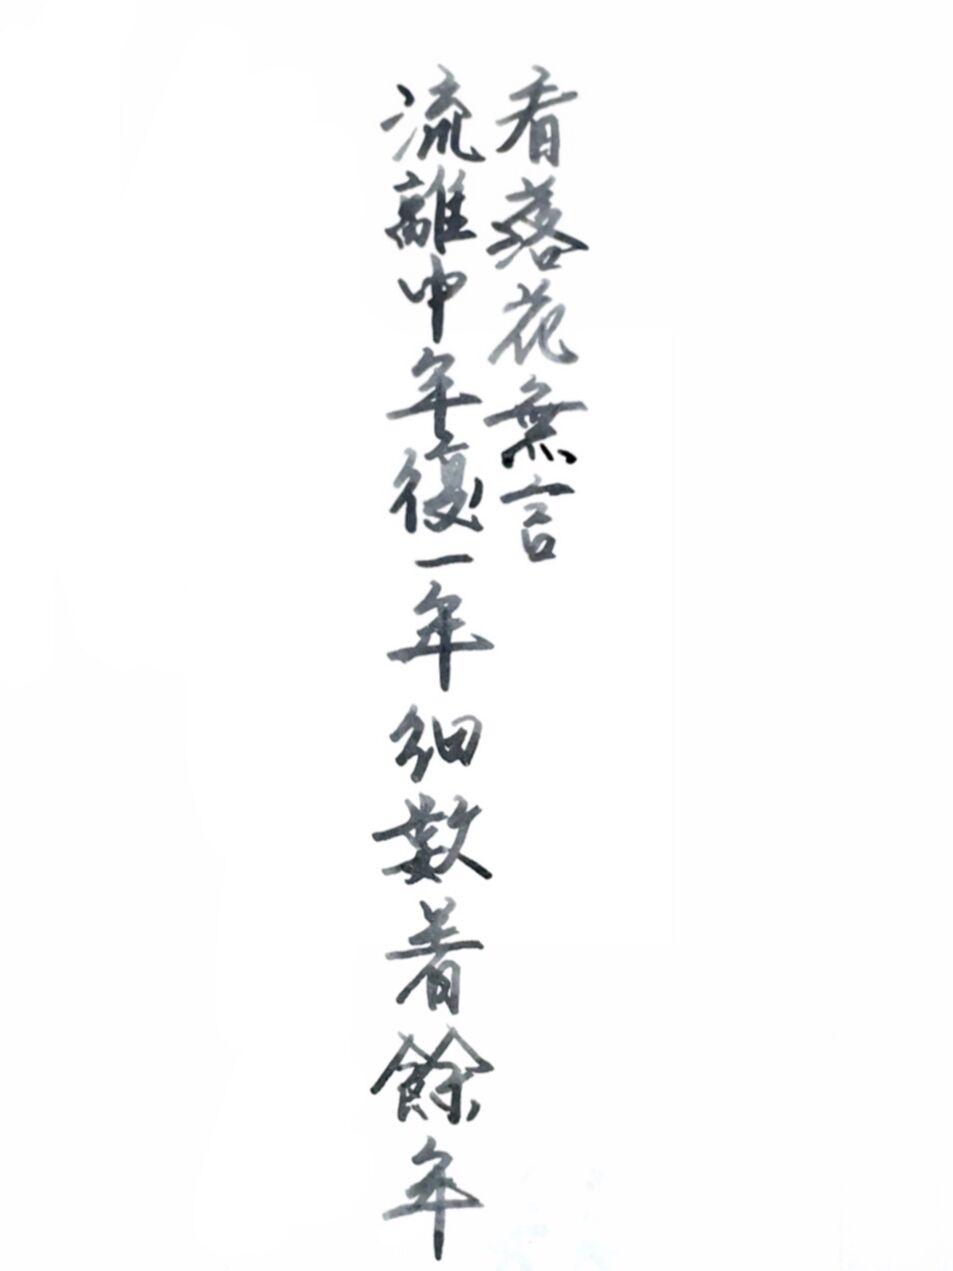 看落花無言
流離中年復一年細數着餘年